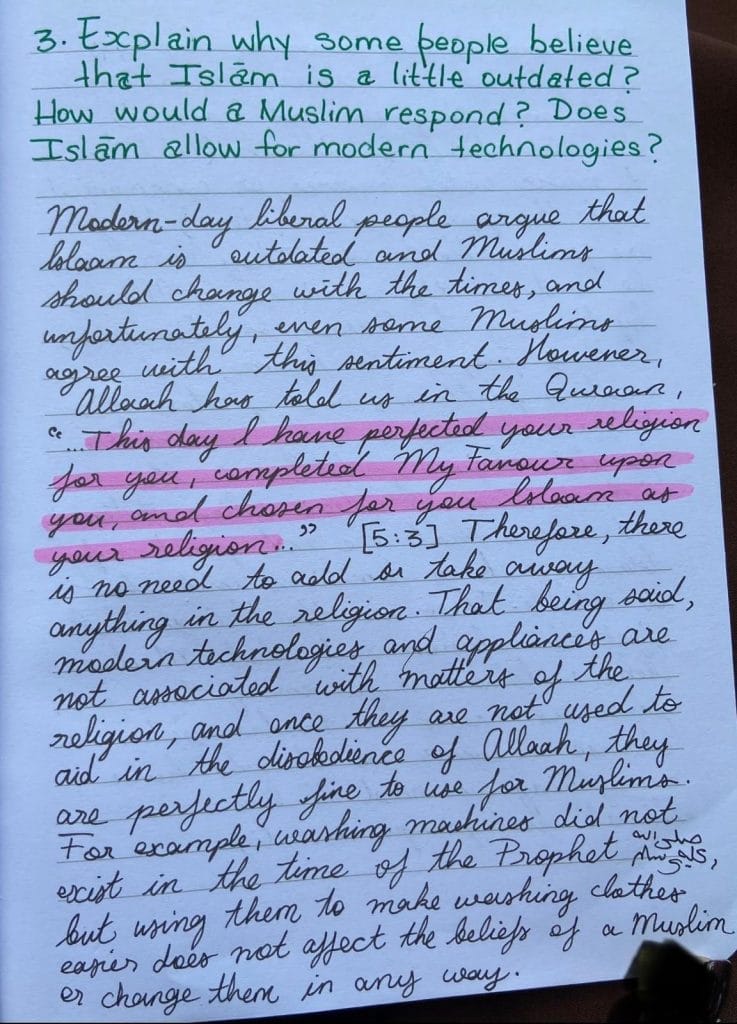 3. Explain why some people believe
that Islām is a little outdated?
How would a Muslim respond? Does
Islām allow for modern technologies?
Modern-day liberal people argue that
Islaam is outdated and Muslims
should change with the times, and
unfortunately, even some Muslims
agree with this sentiment. However,
Allaah has told us in the Quraan,
"...This day I have perfected your religion
for you, completed My Favour upon
you, and chosen for you Islaam as
your religion..." [5:3] Therefore, there
is no need to add or take away
anything in the religion. That being said,
modern technologies and appliances are
not associated with matters of the
religion, and once they are not used to
aid in the disobedience of Allaah, they
are perfectly fine to use for Muslims.
For example, washing machines did not
exist in the time of the Prophet صلى الله عليه وسلم,
but using them to make washing clothes
easier does not affect the beliefs of a Muslim
or change them in any way.